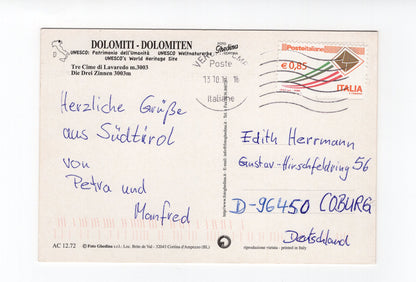 DOLOMITI - DOLOMITEN
UNESCO: Patrimonio dell'Umanità UNESCO Weltnaturerbe
UNESCO's World Heritage Site
Tre Cime di Lavaredo m.3003
Die Drei Zinnen 3003m
Ghedina
CORTINA
Poste
13.10.
Italiane
Posteitaliane
€ 0,85
ITALIA
Herzliche Grüße
aus Südtirol
von
Petra und
Manfred
Edith Herrmann
Gustav-Hirschfeldring 56
D-96450 COBURG
Deutschland
AC 12.72
© Foto Ghedina s.r.l. Loc. Brite de Val - 32043 Cortina d'Ampezzo (BL)
riproduzione vietata - printed in Italy